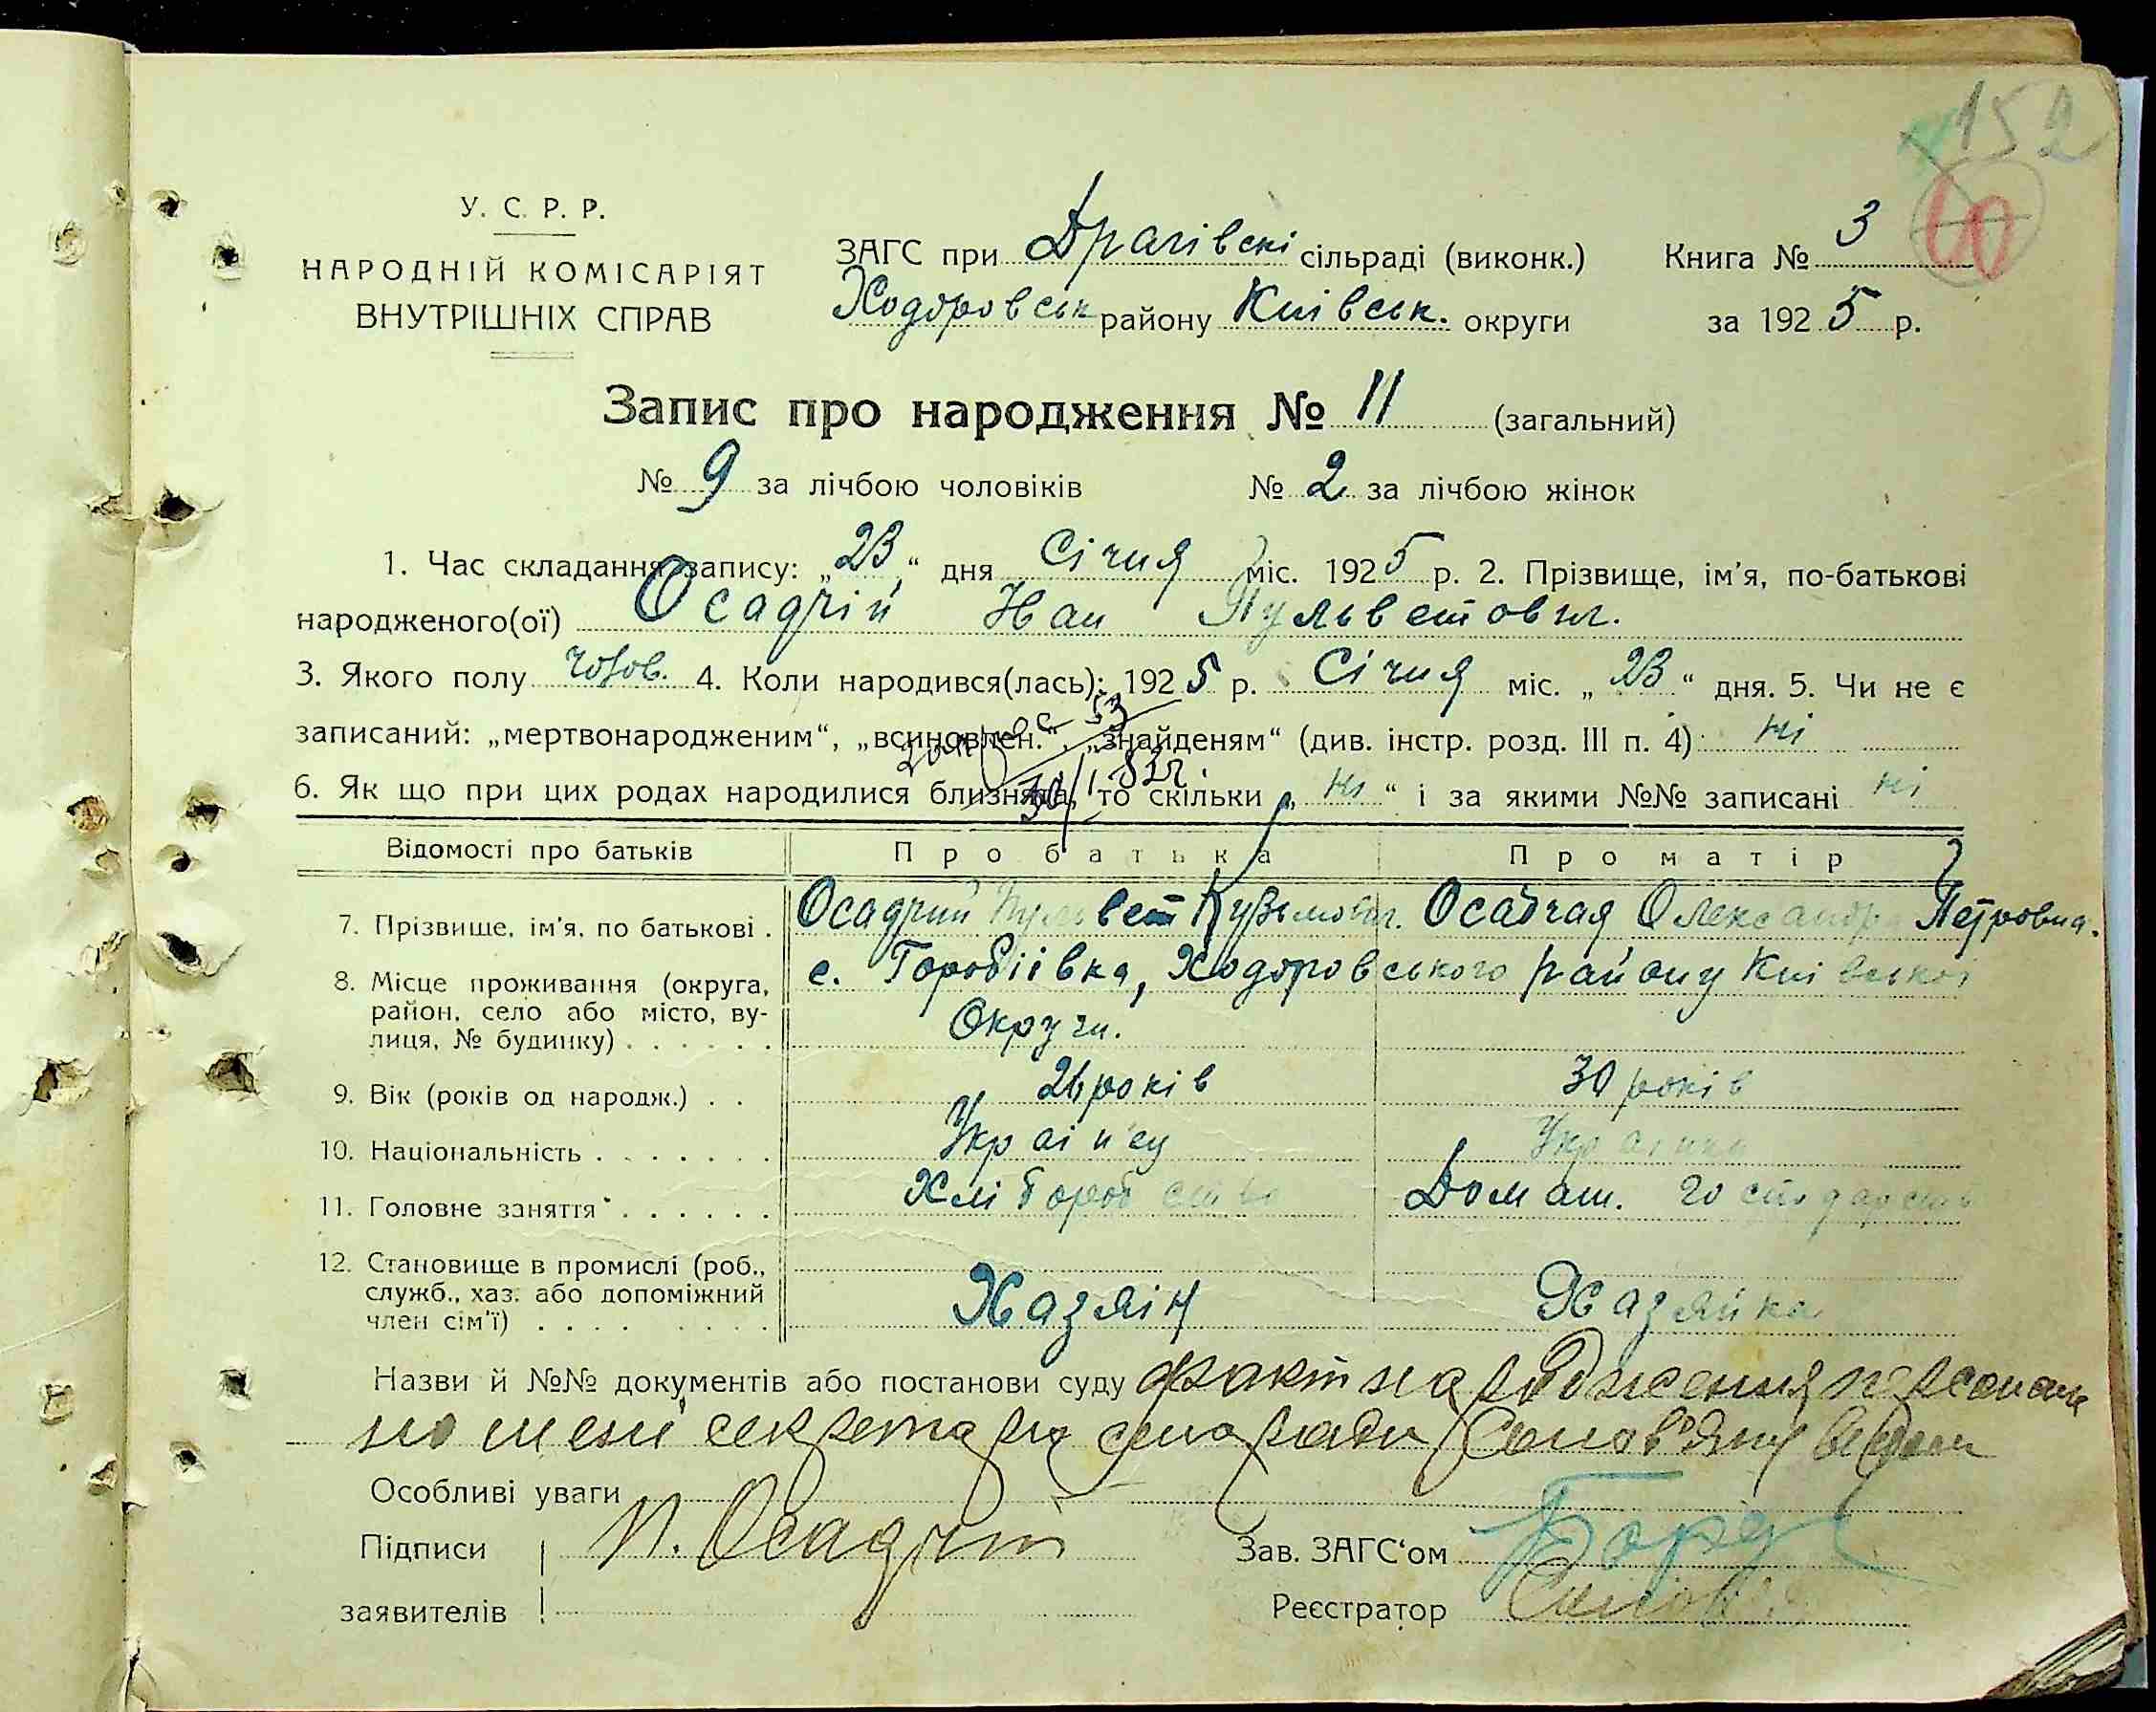 152
10
У. С. Р. Р.
НАРОДНІЙ КОМІСАРІЯТ
ВНУТРІШНІХ СПРАВ
ЗАГС при Драчівскі сільраді (виконк.) Книга № 3
Ходоровськ району Київськ. округи за 1925 р.
Запис про народження № 11 (загальний)
№ 9 за лічбою чоловіків № 2 за лічбою жінок
1. Час складання запису: „23“ дня Січня міс. 1925 р. 2. Прізвище, ім'я, по-батькові
народженого(ої) Осадчій Іван Пульветович.
3. Якого полу чолов. 4. Коли народився(лась): 1925 р. Січня міс. „23“ дня. 5. Чи не є
записаний: „мертвонародженим“, „всиновлен.“, „знайденям“ (див. інстр. розд. III п. 4) ні
6. Як що при цих родах народилися близнята, то скільки „ні“ і за якими №№ записані ні
Відомості про батьків Про батька Про матір
7. Прізвище, ім'я, по батькові . Осадчий Пульвет Кузьмович. Осадчая Олександра Петровна.
8. Місце проживання (округа, с. Горобіївка, Ходоровського району Київської
район, село або місто, ву- Округи.
лиця, № будинку) . . . . . .
9. Вік (років од народж.) . . 26 років 30 років
10. Національність . . . . . . . Україн'ец Українка
11. Головне заняття . . . . . . Хліборобство Домаш. господарство
12. Становище в промислі (роб.,
служб., хаз. або допоміжний Хазяін Хазяйка
член сім'ї) . . . . . . . . .
Назви й №№ документів або постанови суду факт народження персональ
но мені секретарю сельради Солов'яну ведом
Особливі уваги
Підписи П. Осадчий Зав. ЗАГС'ом
заявителів Реєстратор